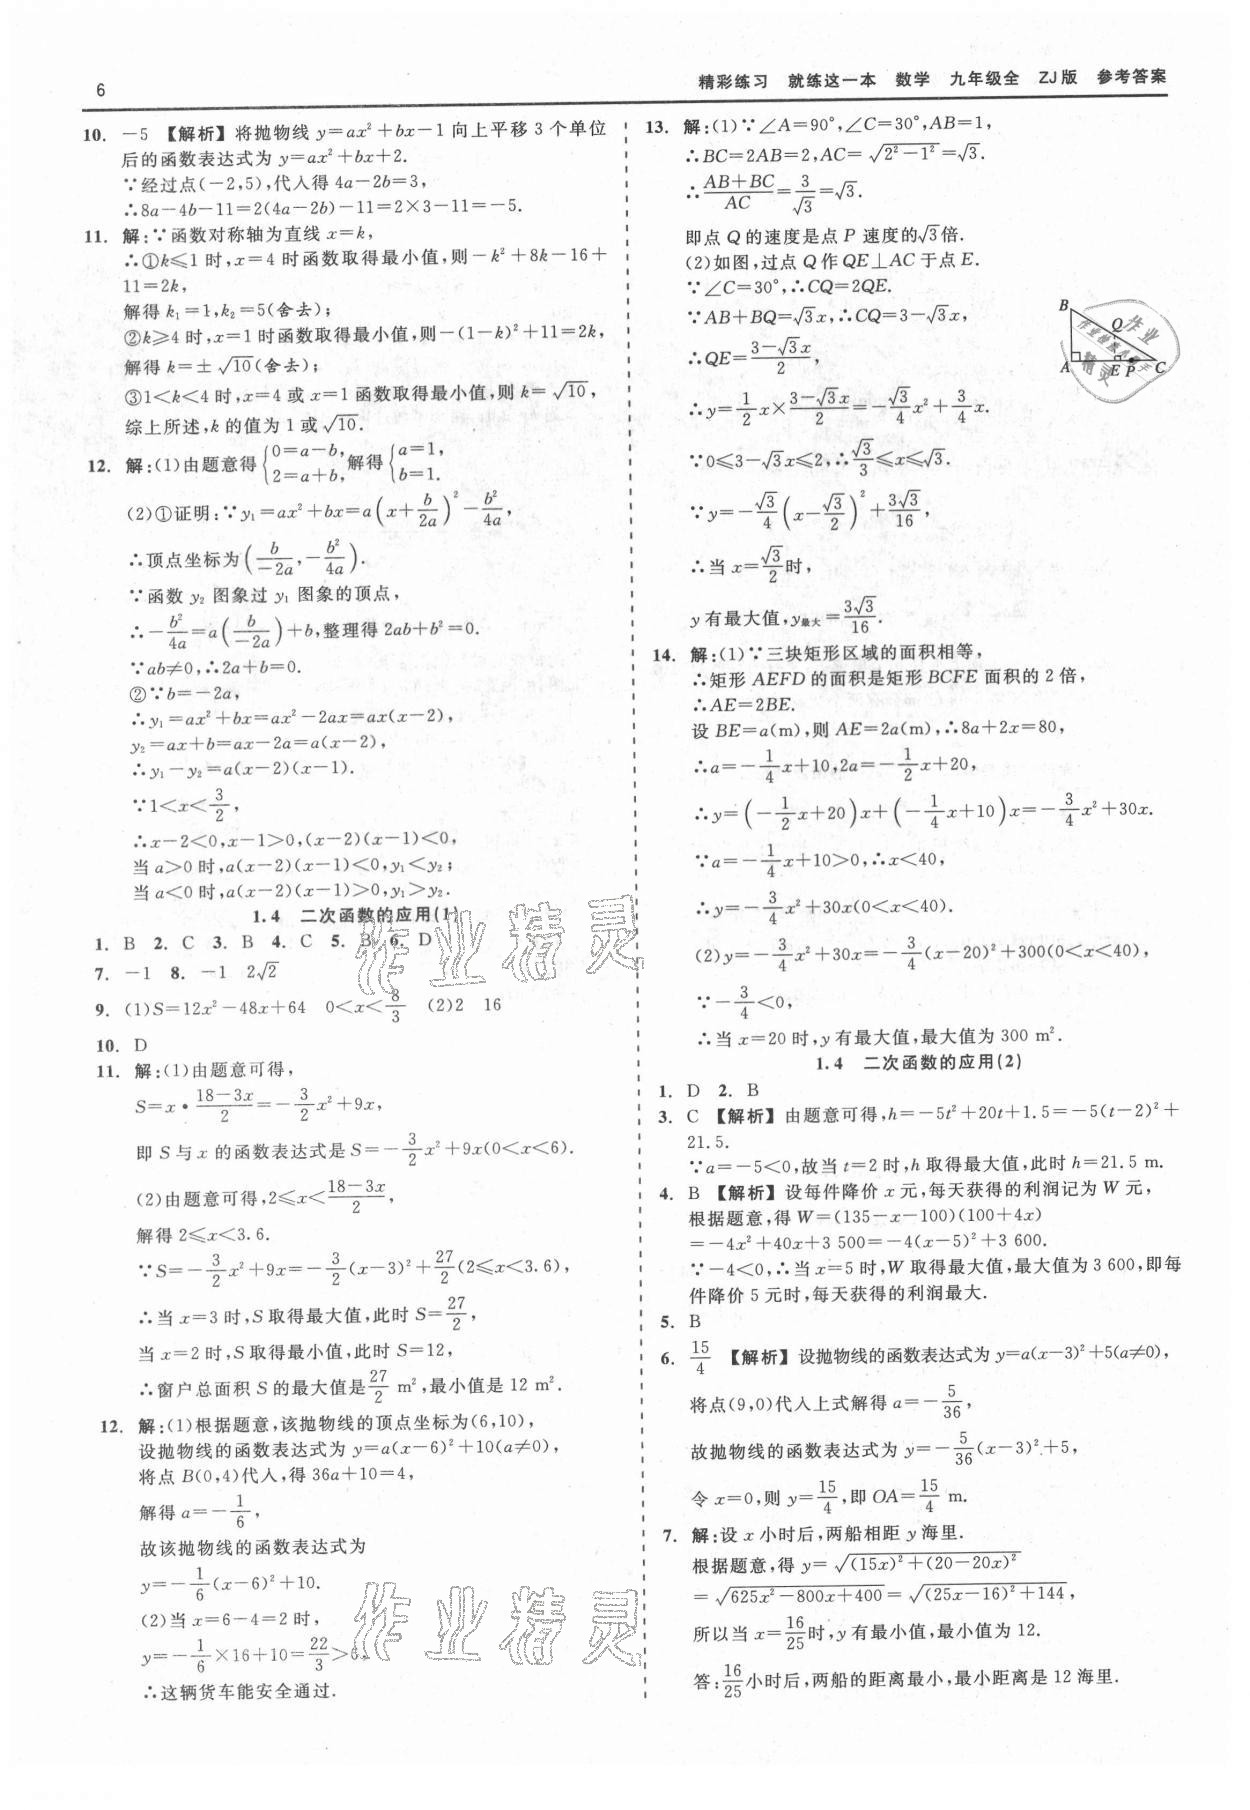 6
精彩练习 就练这一本 数学 九年级全 ZJ版 参考答案
10. －5 【解析】将抛物线 y=ax²+bx-1 向上平移 3 个单位
后的函数表达式为 y=ax²+bx+2.
∵经过点(-2,5),代入得 4a-2b=3,
∴8a-4b-11=2(4a-2b)-11=2×3-11=-5.
11. 解:∵函数对称轴为直线 x=k,
∴①k≤1 时,x=4 时函数取得最小值,则-k²+8k-16+
11=2k,
解得 k₁=1,k₂=5(舍去);
②k≥4 时,x=1时函数取得最小值,则-(1-k)²+11=2k,
解得 k=±√10(舍去);
③1<k<4 时,x=4或 x=1函数取得最小值,则 k=√10,
综上所述,k 的值为 1或√10.
12. 解:(1)由题意得{0=a-b, 2=a+b, 解得{a=1, b=1.
(2)①证明:∵y₁=ax²+bx=a(x+b/2a)²-b²/4a,
∴顶点坐标为(b/-2a,-b²/4a).
∵函数 y₂ 图象过 y₁ 图象的顶点,
∴-b²/4a=a(b/-2a)+b,整理得 2ab+b²=0.
∵ab≠0,∴2a+b=0.
②∵b=-2a,
∴y₁=ax²+bx=ax²-2ax=ax(x-2),
y₂=ax+b=ax-2a=a(x-2),
∴y₁-y₂=a(x-2)(x-1).
∵1<x<3/2,
∴x-2<0,x-1>0,(x-2)(x-1)<0,
当 a>0 时,a(x-2)(x-1)<0,y₁<y₂;
当 a<0 时,a(x-2)(x-1)>0,y₁>y₂.
1.4 二次函数的应用(1)
1. B 2. C 3. B 4. C 5. B 6. D
7. -1 8. -1 2√2
9. (1)S=12x²-48x+64 0<x<8/3 (2)2 16
10. D
11. 解:(1)由题意可得,
S=x·18-3x/2=-3/2x²+9x,
即 S 与 x 的函数表达式是 S=-3/2x²+9x(0<x<6).
(2)由题意可得,2≤x<18-3x/2,
解得 2≤x<3.6.
∵S=-3/2x²+9x=-3/2(x-3)²+27/2(2≤x<3.6),
∴当 x=3 时,S 取得最大值,此时 S=27/2,
当 x=2 时,S取得最小值,此时 S=12,
∴窗户总面积 S 的最大值是27/2 m²,最小值是 12 m².
12. 解:(1)根据题意,该抛物线的顶点坐标为(6,10),
设抛物线的函数表达式为 y=a(x-6)²+10(a≠0),
将点 B(0,4)代入,得 36a+10=4,
解得 a=-1/6,
故该抛物线的函数表达式为
y=-1/6(x-6)²+10.
(2)当 x=6-4=2 时,
y=-1/6×16+10=22/3>6.
∴这辆货车能安全通过.
13. 解:(1)∵∠A=90°,∠C=30°,AB=1,
∴BC=2AB=2,AC=√2²-1²=√3.
∴AB+BC/AC=3/√3=√3.
即点 Q 的速度是点 P 速度的√3倍.
(2)如图,过点 Q 作 QE⊥AC 于点 E.
∵∠C=30°,∴CQ=2QE.
∵AB+BQ=√3x,∴CQ=3-√3x,
∴QE=3-√3x/2,
∴y=1/2x×3-√3x/2=-√3/4x²+3/4x.
∵0≤3-√3x≤2,∴√3/3≤x≤√3.
∵y=-√3/4(x-√3/2)²+3√3/16,
∴当 x=√3/2时,
y 有最大值,y最大=3√3/16.
B
Q
A
E
P
C
作业
精灵
14. 解:(1)∵三块矩形区域的面积相等,
∴矩形 AEFD 的面积是矩形 BCFE 面积的 2 倍,
∴AE=2BE.
设 BE=a(m),则 AE=2a(m),∴8a+2x=80,
∴a=-1/4x+10,2a=-1/2x+20,
∴y=(-1/2x+20)x+(-1/4x+10)x=-3/4x²+30x.
∵a=-1/4x+10>0,∴x<40,
∴y=-3/4x²+30x(0<x<40).
(2)y=-3/4x²+30x=-3/4(x-20)²+300(0<x<40),
∵-3/4<0,
∴当 x=20 时,y 有最大值,最大值为 300 m².
1.4 二次函数的应用(2)
1. D 2. B
3. C 【解析】由题意可得,h=-5t²+20t+1.5=-5(t-2)²+
21.5.
∵a=-5<0,故当 t=2 时,h 取得最大值,此时 h=21.5 m.
4. B 【解析】设每件降价 x 元,每天获得的利润记为 W 元,
根据题意,得 W=(135-x-100)(100+4x)
=-4x²+40x+3 500=-4(x-5)²+3 600.
∵-4<0,∴当 x=5 时,W 取得最大值,最大值为 3 600,即每
件降价 5 元时,每天获得的利润最大.
5. B
6. 15/4 【解析】设抛物线的函数表达式为 y=a(x-3)²+5(a≠0),
将点(9,0)代入上式解得 a=-5/36,
故抛物线的函数表达式为 y=-5/36(x-3)²+5,
令 x=0,则 y=15/4,即 OA=15/4 m.
7. 解:设 x 小时后,两船相距 y 海里.
根据题意,得 y=√(15x)²+(20-20x)²
=√625x²-800x+400=√(25x-16)²+144,
所以当 x=16/25时,y 有最小值,最小值为 12.
答:16/25小时后,两船的距离最小,最小距离是 12 海里.
作业精灵
作业精灵